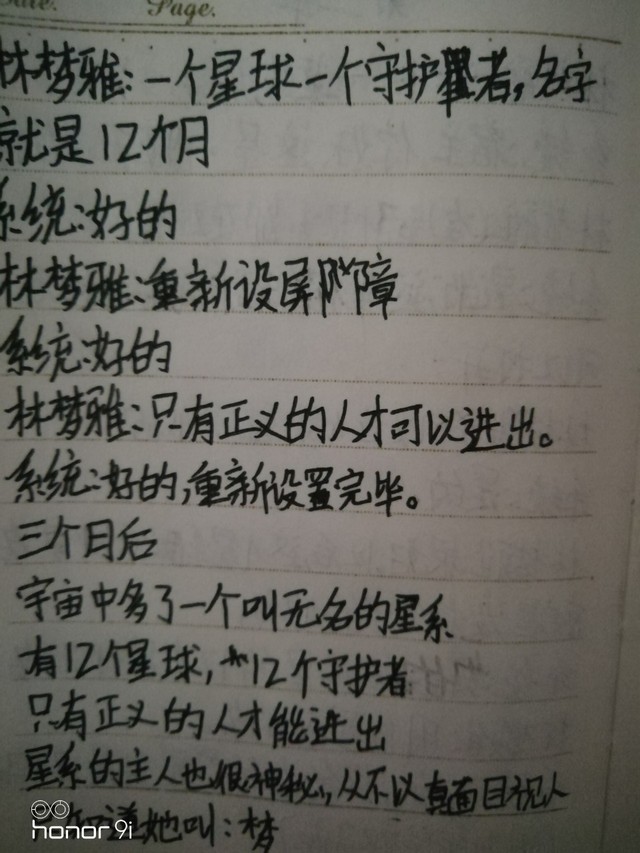 Date. Page.
林梦雅:一个星球一个守护者,名字
就是12个月
系统:好的
林梦雅:重新设屏障
系统:好的
林梦雅:只有正义的人才可以进出。
系统:好的,重新设置完毕。
三个月后
宇宙中多了一个叫无名的星系
有12个星球,12个守护者
只有正义的人才能进出
星系的主人也很神秘,从不以真面目视人
知道她叫:梦
honor 9i